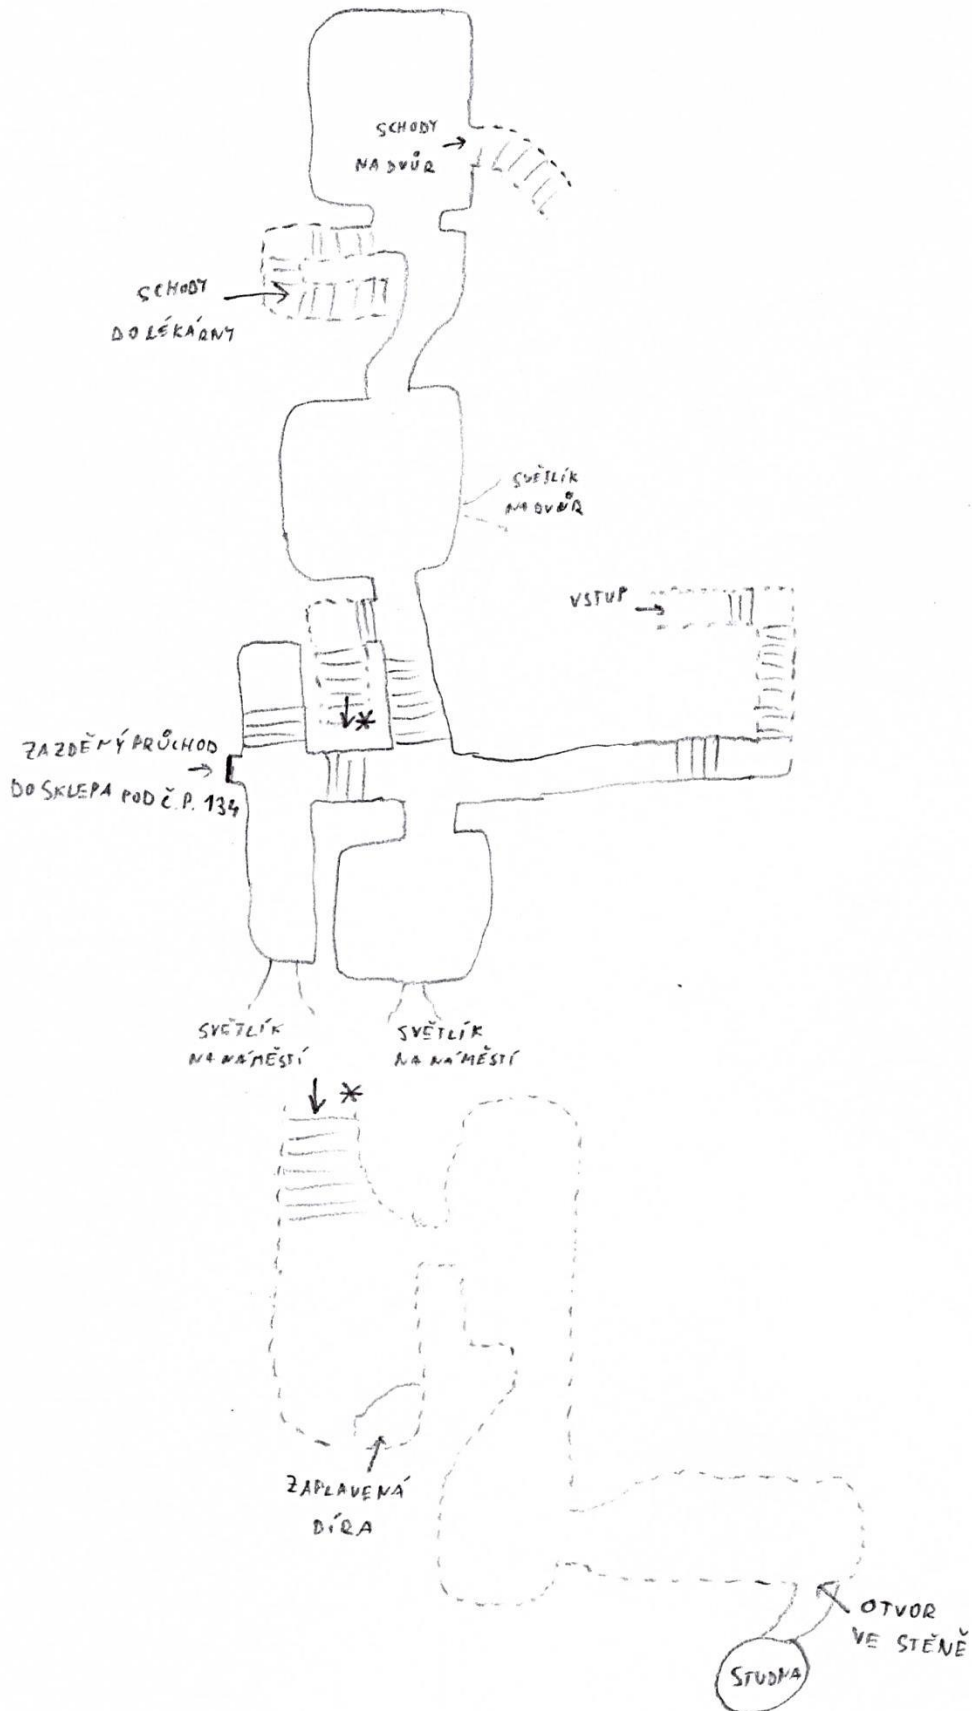 SCHODY
NA DVŮR
SCHODY
DO LÉKÁRNY
SVĚTLÍK
NA DVŮR
VSTUP
*
ZAZDĚNÝ PRŮCHOD
DO SKLEPA POD Č.P. 134
SVĚTLÍK
NA NÁMĚSTÍ
SVĚTLÍK
NA NÁMĚSTÍ
*
ZAPLAVENÁ
DÍRA
OTVOR
VE STĚNĚ
STUDNA